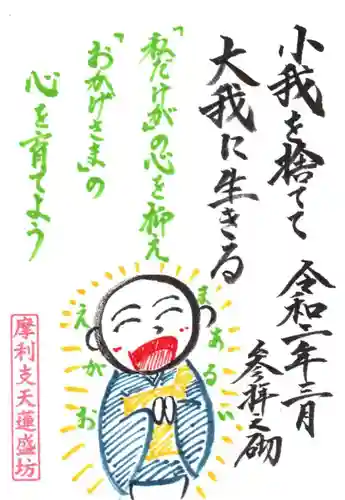 小我を捨てて
大我に生きる
令和二年三月
参拝之砌
「私だけが」の心を抑え
「おかげさま」の
心を育てよう
まあるい
えがお
摩利支天蓮盛坊